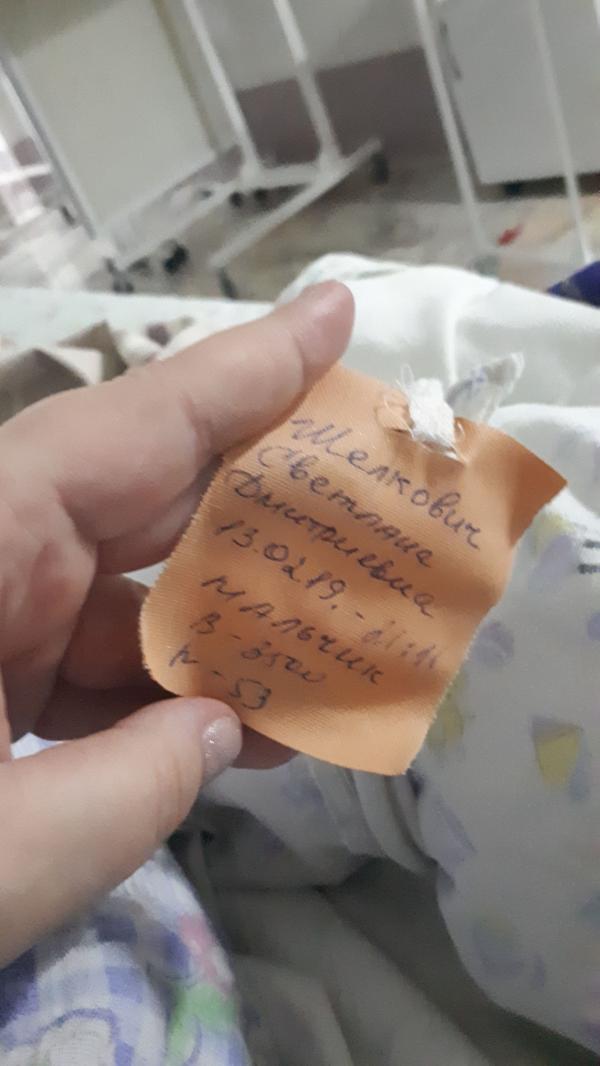 Шелкович
Светлана
Дмитриевна
13.02.19. -
мальчик
В - 3500
р - 53